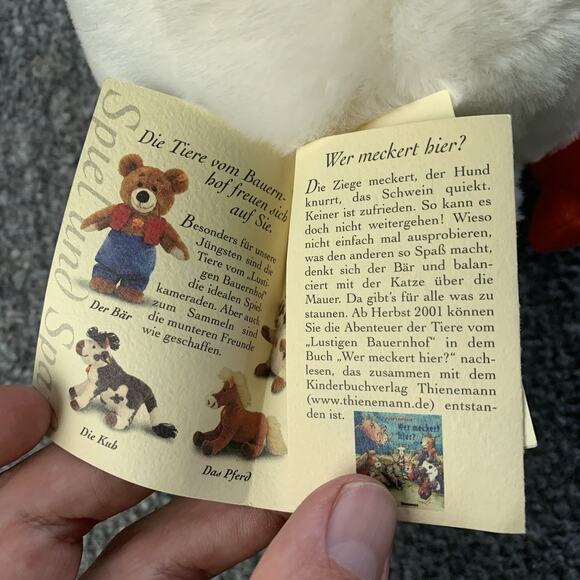 Spiel und Spa
Die Tiere vom Bauern-
hof freuen sich
auf Sie.
Besonders für unsere
Jüngsten sind die
Tiere vom „Lusti-
gen Bauernhof“
die idealen Spiel-
kameraden. Aber auch
zum Sammeln sind
die munteren Freunde
wie geschaffen.
Der Bär
Die Kuh
Das Pferd
Wer meckert hier?
Die Ziege meckert, der Hund
knurrt, das Schwein quiekt.
Keiner ist zufrieden. So kann es
doch nicht weitergehen! Wieso
nicht einfach mal ausprobieren,
was den anderen so Spaß macht,
denkt sich der Bär und balan-
ciert mit der Katze über die
Mauer. Da gibt's für alle was zu
staunen. Ab Herbst 2001 können
Sie die Abenteuer der Tiere vom
„Lustigen Bauernhof“ in dem
Buch „Wer meckert hier?“ nach-
lesen, das zusammen mit dem
Kinderbuchverlag Thienemann
(www.thienemann.de) entstan-
den ist.
Wer meckert
hier?